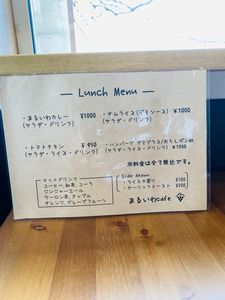 — Lunch Menu —
・まるいわカレー ¥1000
(サラダ・ドリンク)
・オムライス(デミソース) ¥1000
(サラダ・ドリンク)
・トマトチキン ¥950
(サラダ・ライス・ドリンク)
・ハンバーグ デミグラス/おろしポン酢
(サラダ・ライス・ドリンク)
※料金は全て税込です。
セットドリンク
コーヒー, 紅茶, コーラ
ジンジャーエール
ウーロン茶, アップル
オレンジ, グレープフルーツ
Side Menu
・ライス大盛り ¥100
・ガーリックトースト
まるいわcafe